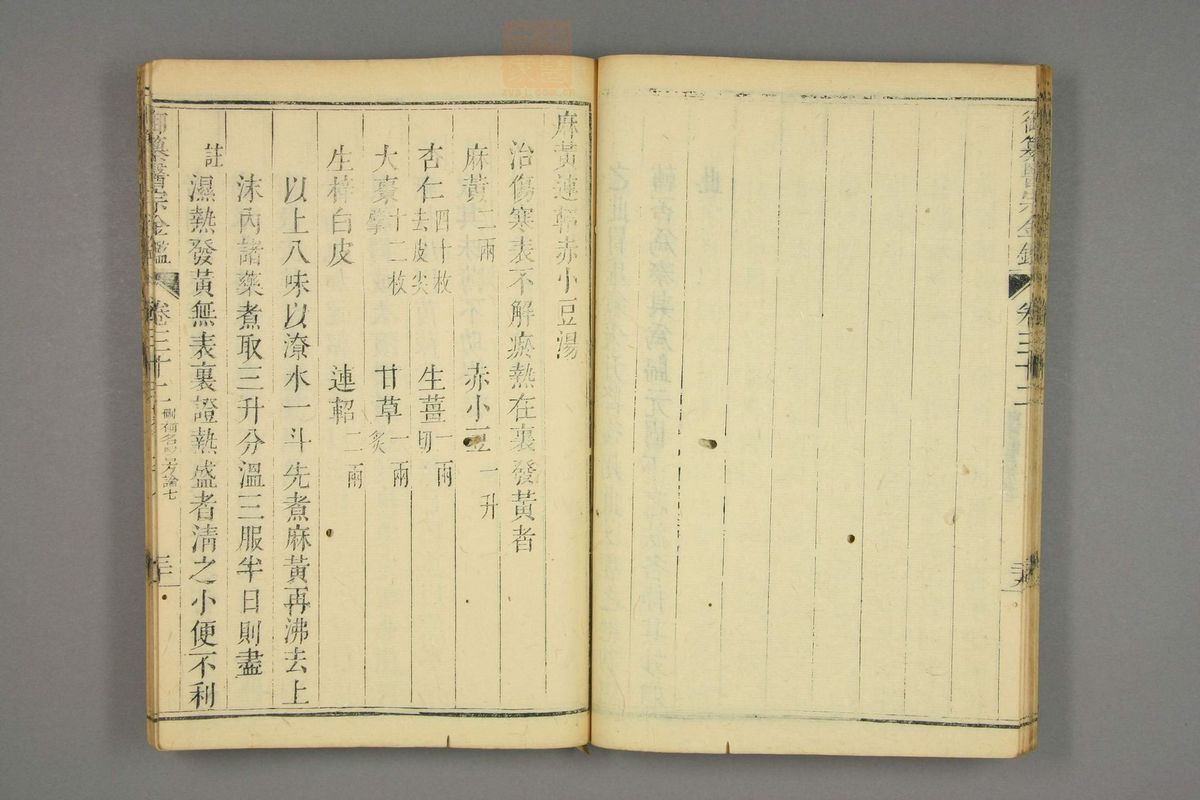 御纂醫宗金鑑 卷三十二
麻黃連軺赤小豆湯
治傷寒表不解瘀熱在裏發黃者
麻黃二兩 赤小豆一升
杏仁四十枚去皮尖 生薑一兩切
大棗十二枚擘 甘草一兩炙
生梓白皮 連軺二兩
以上八味以潦水一斗先煮麻黃再沸去上
沫內諸藥煮取三升分溫三服半日則盡
註
濕熱發黃無表裏證熱盛者清之小便不利
御纂醫宗金鑑 卷三十一